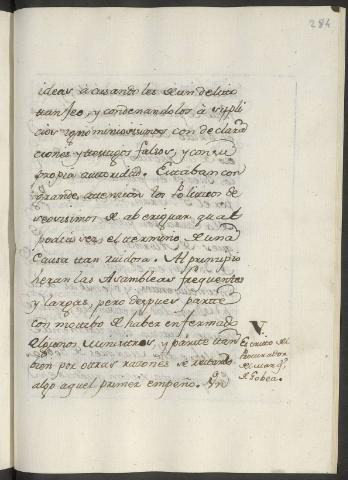 284
ideas, acusandoles de un delito
tan feo, y condenandolos à supli
cios ignominiosissimos, con declara
ciones y testigos falsos, y con su
propia autoridad. Estaban con
grande atencion los Politicos de
seosissimos de aberiguar, qual
podia ser el termino de una
Causa tan ruidosa. Al principio
heran las Asambleas frequentes
y largas, pero despues parte
con motibo de haber enfermado
algunos Ministros, y parte tan
bien por otras razones se retardò
algo aquel primer empeño. Un
V.
Escrito del
Procurador
del Marq.s
de Gobea.